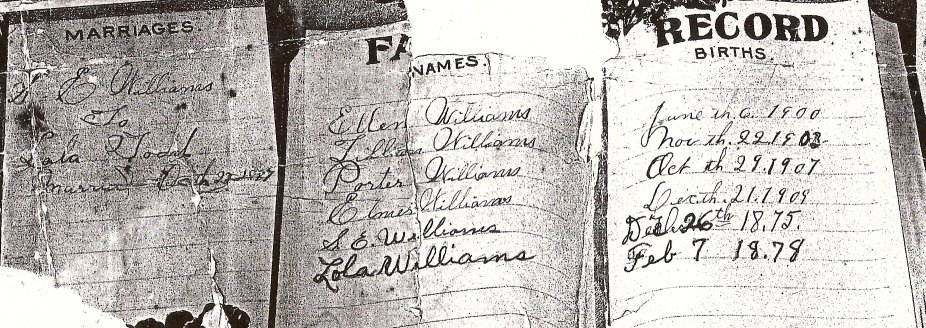 MARRIAGES.
S. E Williams
To
Lola Todd
married
FA
NAMES.
Ellen Williams
Lillian Williams
Porter Williams
Elmer Williams
S. E. Williams
Lola Williams
RECORD
BIRTHS.
June th. 6. 1900
Nov th. 22. 1903
Oct th. 29. 1907
Dec th. 21. 1909
26th 18.75.
Feb 7 18.78